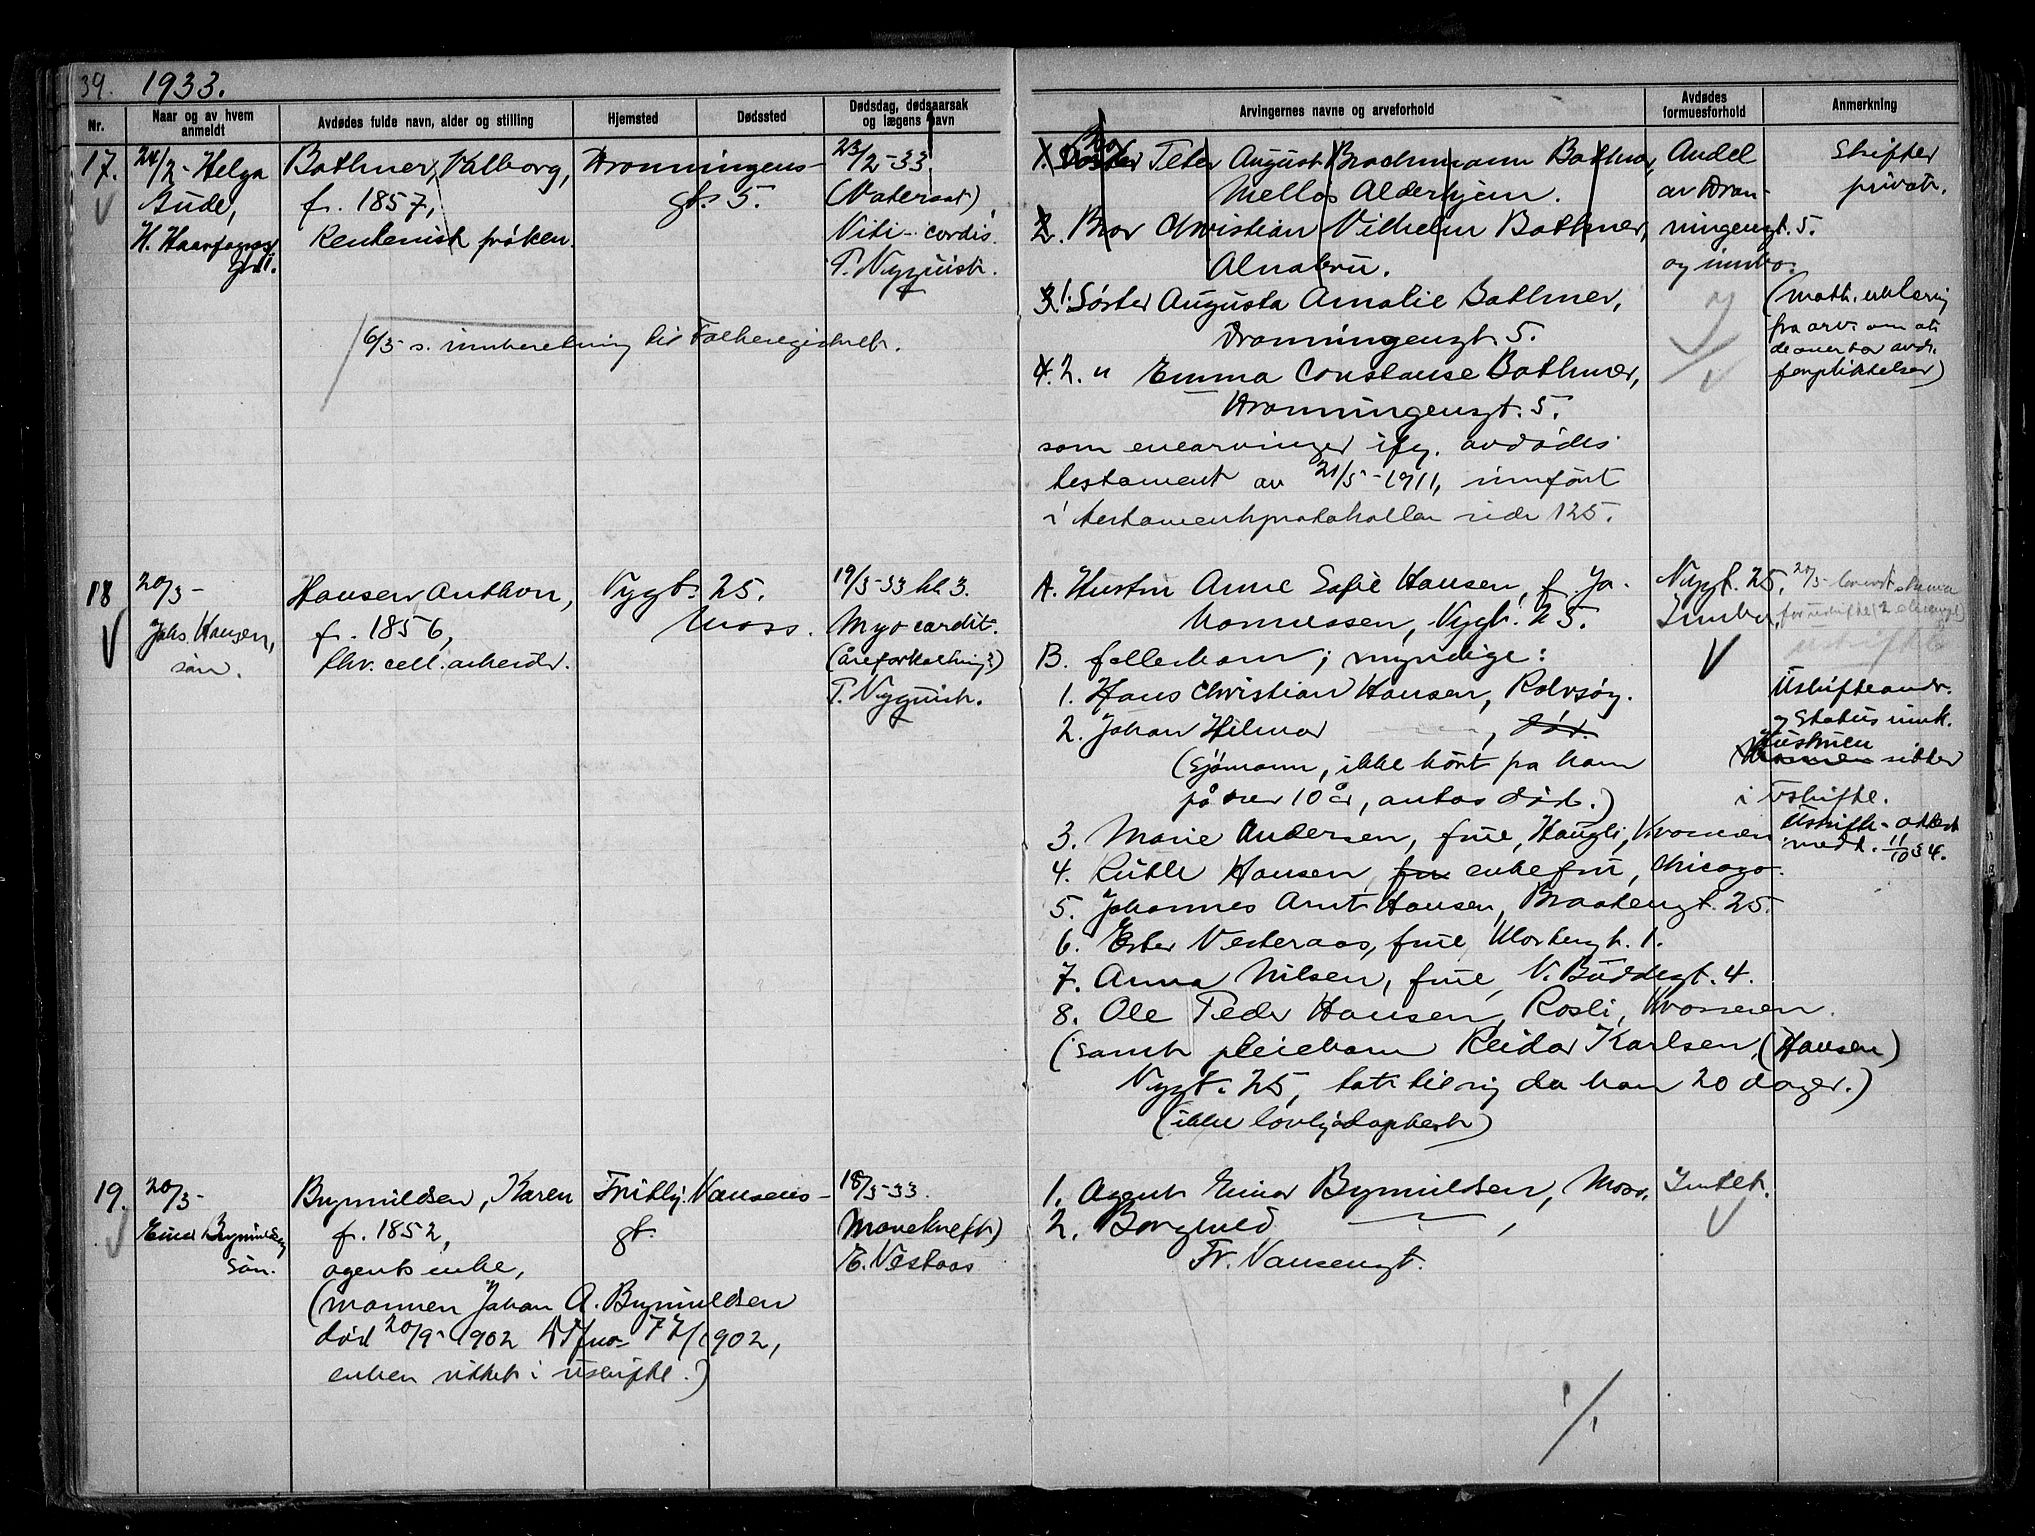 39. 1933.
Nr.
Naar og av hvem anmeldt
Avdødes fulde navn, alder og stilling
Hjemsted
Dødssted
Dødsdag, dødsaarsak og lægens navn
Arvingernes navne og arveforhold
Avdødes formuesforhold
Anmerkning
17.
24/2 - Helga
Gude,
H. Haarfagres
gt.
Bathner, Valborg,
f. 1857,
Rentenist frøken.
Dronningens-
gt. 5.
23/2-33.
Viti-cordis.
T. Nyquist.
6/3 s. innberetning til Folkeregistret.
1. Bror Peter August Brochmann Bathner,
Mellos Alderhjem.
2. Bror Christian Vilhelm Bathner,
Alnabru.
3. 1. Søster Augusta Amalie Bathner,
Dronningensgt. 5.
4. 2. " Emma Constanse Bathner,
Dronningensgt. 5.
som enearvinger ifg. avdødes
testament av 21/5-1911, innført
i testamentsprotokollen side 125.
Andel
av Dron-
ningensgt. 5.
og innbo.
Skifter
privat.
(mott. erklæring
fra arv. om at
de overtar avds.
forpliktelser)
18
20/3-
Johs Hansen,
søn.
Hansen Anthon,
f. 1856,
fhv. cell. arbeider.
Nygt. 25.
Moss.
19/3-33 kl. 3.
Myocardit.
(åreforkalkning?)
T. Nyquist.
A. Hustru Anne Sofie Hansen, f. Jo-
hannessen, Nygt. 25.
B. fellesbarn; myndige:
1. Hans Christian Hansen, Rolvsøy.
2. Johan Hilmar — " —, død.
(Sjömann, ikke hørt fra ham
på over 10 år, antas død.)
3. Marie Andersen, frue, Haugli, Krosseen
4. Ruth Hansen, fru enkefru, Chicago.
5. Johannes Arnt Hansen, Braatengt. 25.
6. Ester Vesteraas, frue, Klostergt. 1.
7. Anna Nilsen, frue, V. Buddegt. 4.
8. Ole Peder Hansen, Rosli, Krosseen.
(samt pleiebarn Reidar Karlsen, (Hansen)
Nygt. 25, tatt til sig da han 20 dager.)
(ikke lovlig adoptert)
Nygt. 25.
Innbo.
20/3- levert skema
for uskifte (2 eksempl)
Uskifteandr.
og Status innk.
Hustruen
sitter
i uskifte.
Uskifte-attest
medd. 11/10 34.
19.
20/3-
Einar Brynildsen
søn.
Brynildsen, Karen
f. 1852,
agents enke,
(mannen Johan A. Brynildsen
død 20/9-1902 77/1902,
enken sittet i uskifte.)
Fritjj. Nansens-
gt.
18/3-33.
Mavekreft)
E. Vestaas
1. Agent Einar Brynildsen, Moss.
2. Borghild — " —,
Fr. Nansensgt.
Intet.